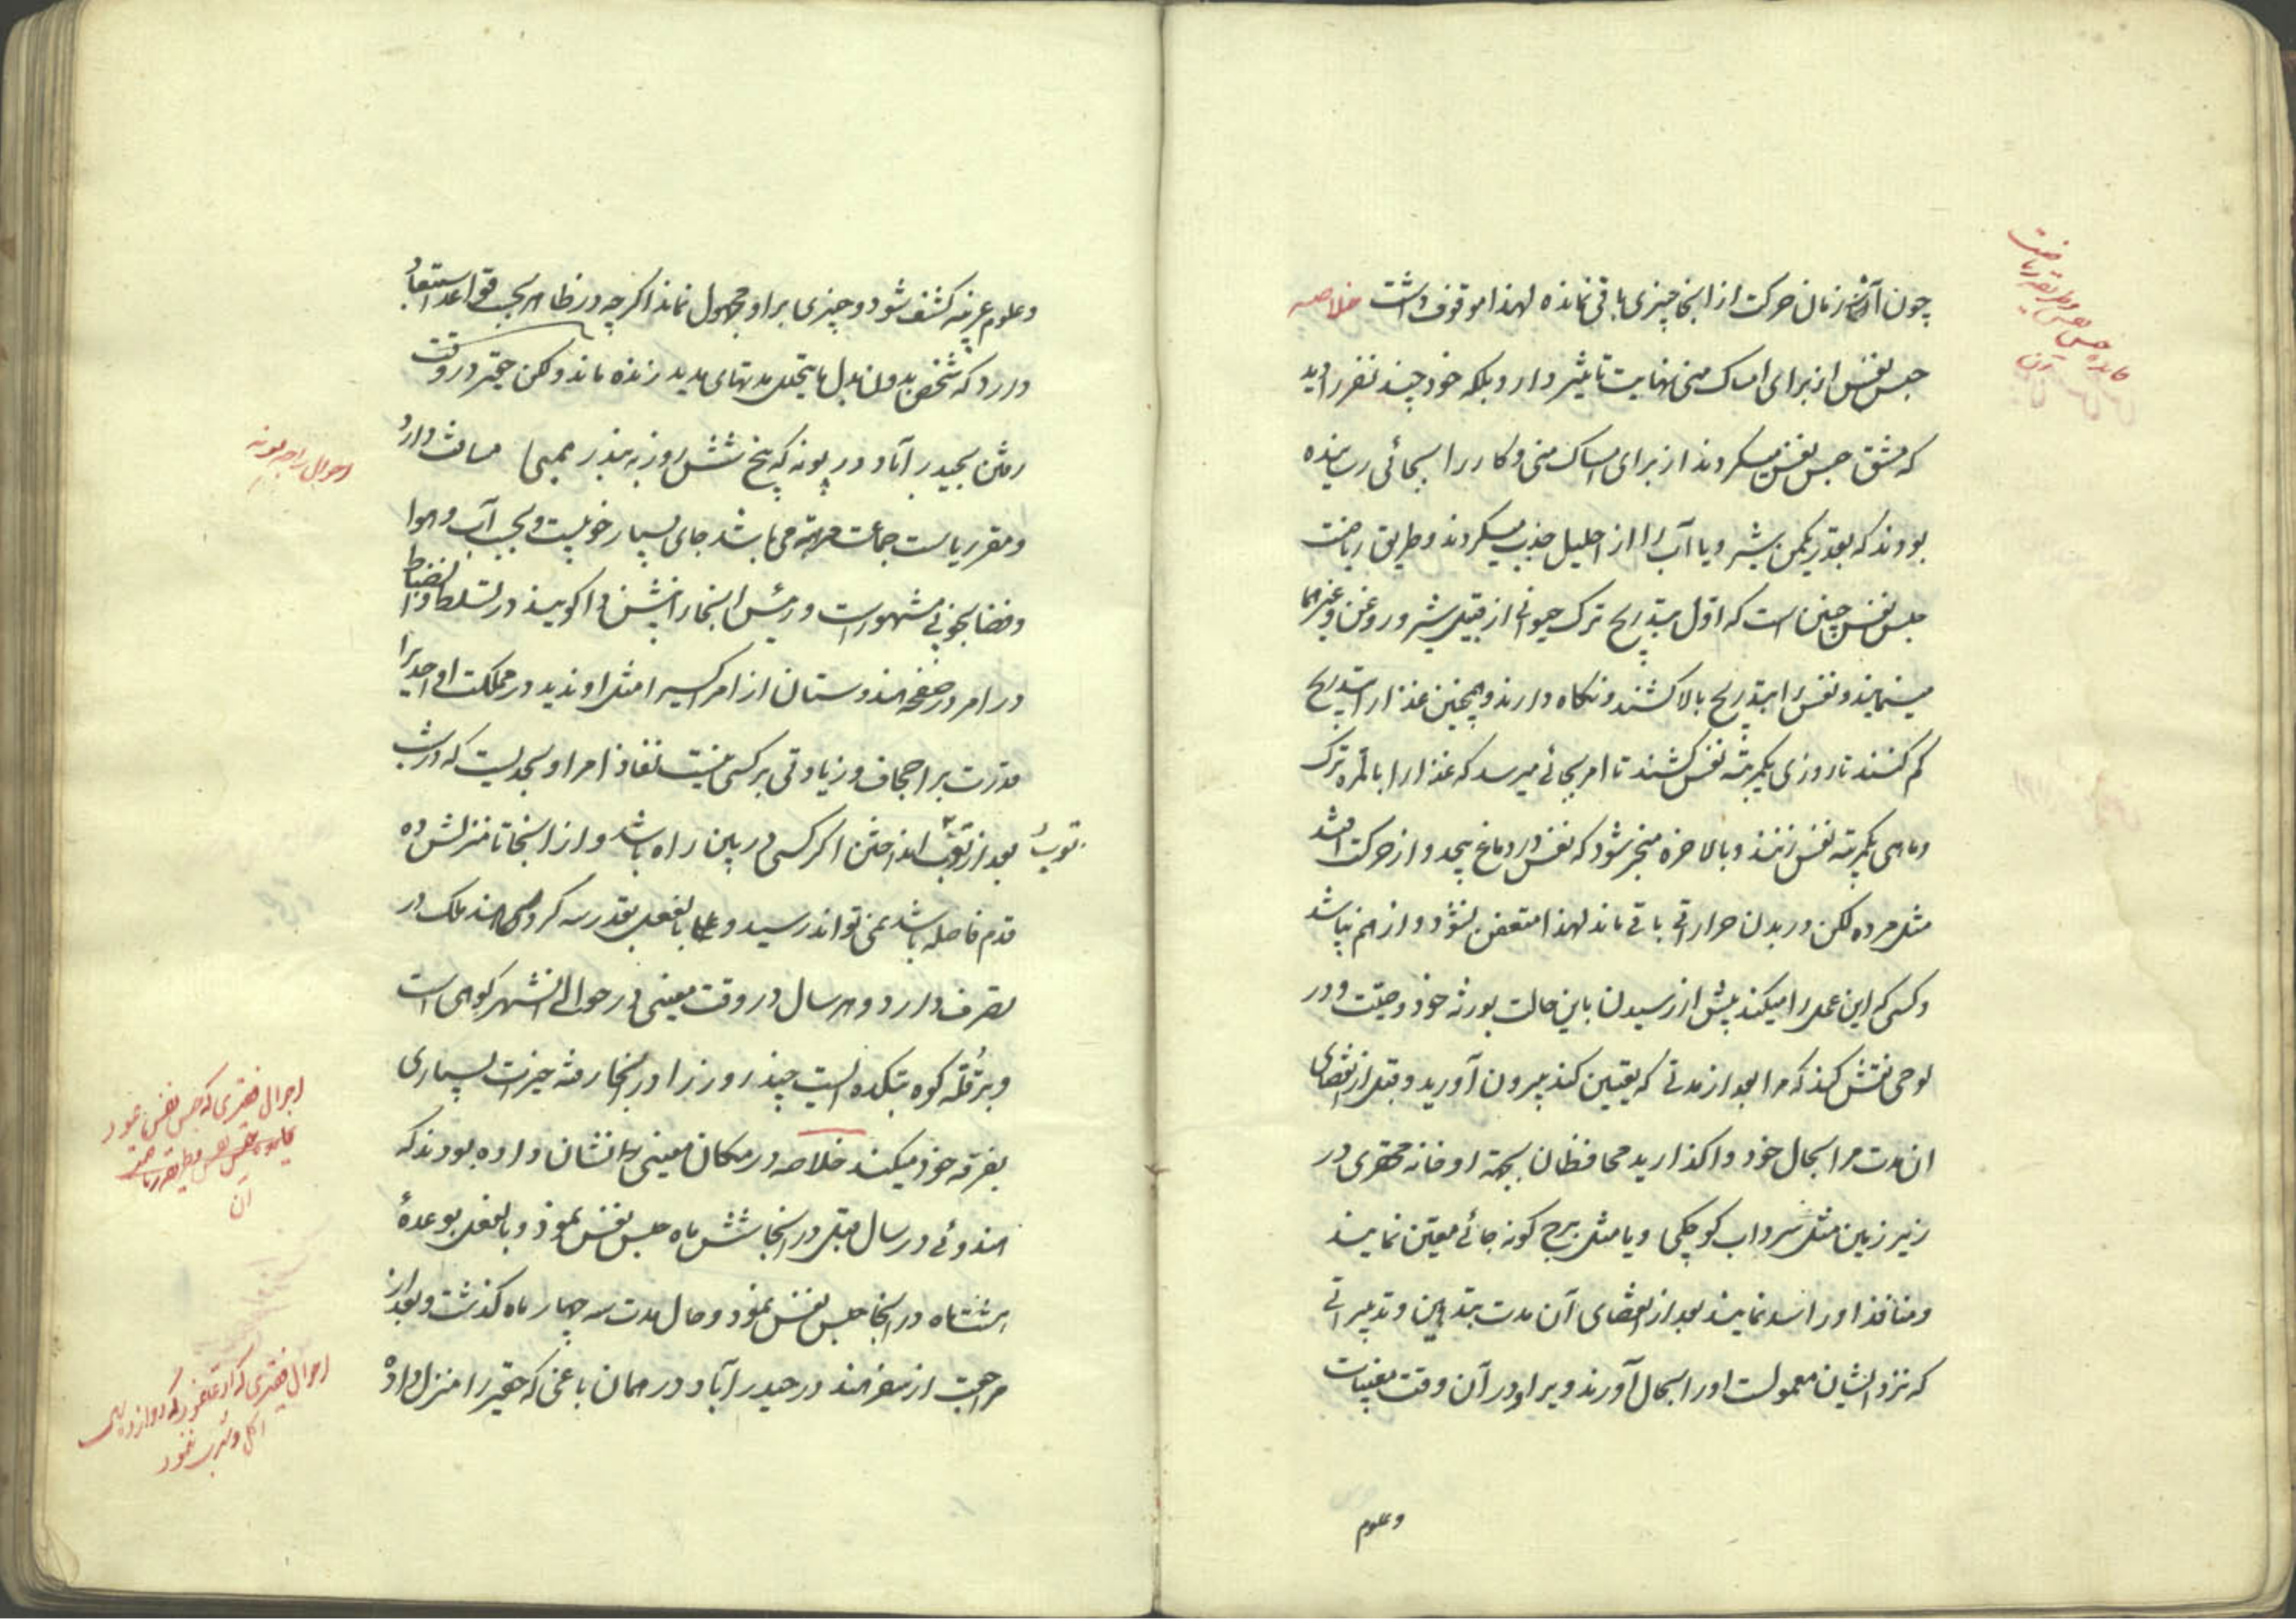 چون آثار زمان حرکت از اینجا چیزی باقی نمانده لهذا موقوف داشت خلاصه
حبس نفس از برای امساک منی نهایت تاثیر دارد بلکه خود چند نفر را دید
که مشق حبس نفس میکردند از برای امساک منی و کار را بجائی رسانیده
بودند که بقدر یکمن شیر و یا آب را از احلیل جذب میکردند و طریق ریاضت
حبس نفس چنین است که اول بتدریج ترک حیوانی از قبیل شیر و روغن و غیرها
مینمایند و نفس را بتدریج بالا کشند و نگاه دارند و همچنین غذا را بتدریج
کم کنند تا روزی یکمرتبه نفس کشند تا امر بجائی میرسد که غذا را بالمره ترک
و ماهی یکمرتبه نفس زنند و بالاخره منجر شود که نفس در دماغ پیچد و از حرکت افتد
مثل مرده لکن در بدن حرارتی باقی ماند لهذا متعفن نشود و از هم نپاشد
و کسی که این عمل را میکند پیش از رسیدن باین حالت بورثه خود وصیت و در
لوحی نقش کند که مرا بعد از مدتی که یقین کند بیرون آورید و قبل از انقضای
ان مدت مرا بحال خود واگذارید محافظان بجهة او خانه محقری در
زیر زمین مثل سرداب کوچکی و یا مثل برج کونه جائی معین نمایند
و منافذ او را سد نمایند بعد از انقضای آن مدت بتدهین و تدبیراتی
که نزد ایشان معمولست او را بحال آورند و براو در آن وقت مغیبات
وعلوم
فایده حبس نفس و طریقه ریاضت
آن
وعلوم غریبه کشف شود و چیزی بر او مجهول نماند اگر چه در ظاهر بحسب قواعد استبعاد
دارد که شخص بدون بدل مایتحلل مدتهای مدید زنده ماند ولکن حقیر در وقت
رفتن بحیدر آباد در پونه که پنج شش روز به بندر ممبی مسافت دارد
و مقر ریاست جماعت مرهته می باشد جای بسیار خوبیست و بحسب آب و هوا
و فضا بخوبی مشهور است و رئیس اینجا را پیشوا گویند در تسلط و انضباط
در امور در صفحه هندوستان از امرا کسیرا مثل او ندید در مملکت او احدیرا
قدرت بر اجحاف و زیادتی بر کسی نیست نفاذ امر او بحدیست که در شب
بعد از توپ انداختن اگر کسی در بین راه باشد و از اینجا تا منزلش ده
توپ
قدم فاصله باشد نمی تواند رسید و بالفعل بقدر سه کرور هند ملک در
تصرف دارد و هر سال در وقت معینی در حوالی انشهر کوهی است
و بر قله کوه بتکده ایست چند روز را در انجا رفته خیرات بسیاری
بفرقه خود میکند خلاصه در مکان معینی را نشان داده بودند که
هندوئی در سال قبل در انجا شش ماه حبس نفس نمود و بالفعل بوعدهٔ
هشتماه در انجا حبس نفس نمود و حال مدت سه چهار ماه گذشت و بعد از
مراجعت از سفر هند در حیدر آباد در همان باغی که حقیر را منزل داد
احوال راجه پونه
احوال فقیری که حبس نفس مینمود
آن
احوال فقیری که دوازده سال
اکل و شرب ننمود